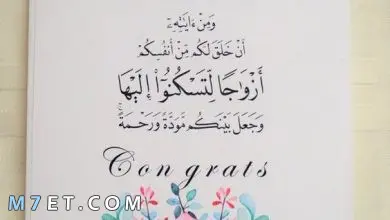 وَمِنْ ءَايَٰتِهِۦٓ
أَنْ خَلَقَ لَكُم مِّنْ أَنفُسِكُمْ
أَزْوَٰجًا لِّتَسْكُنُوٓا۟ إِلَيْهَا
وَجَعَلَ بَيْنَكُم مَّوَدَّةً وَرَحْمَةً ۚ
Congrats
M7ET.COM